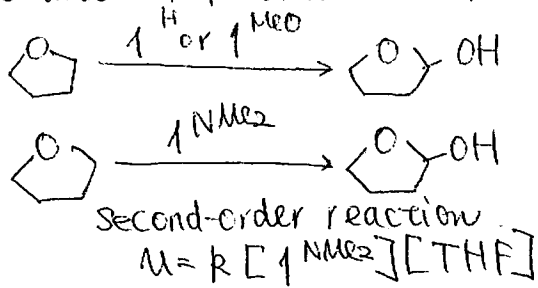 O 1^H or 1^MeO O OH
O 1^NMe2 O OH
second-order reaction
u = k [1^NMe2][THF]